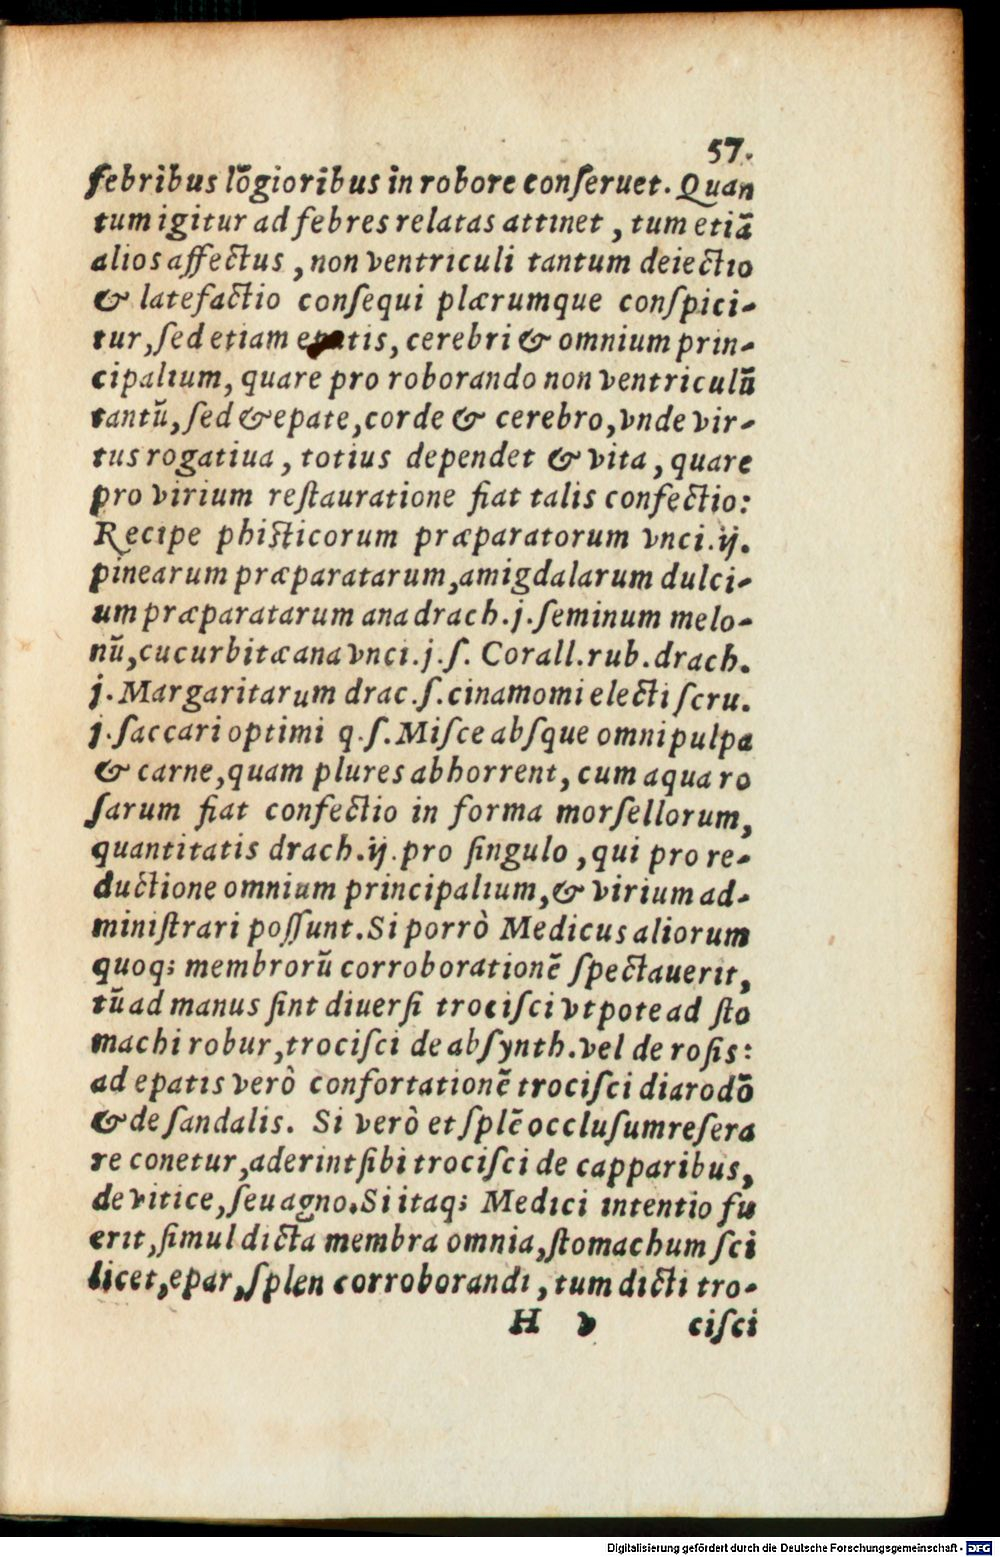 57.
febribus lõgioribus in robore conſeruet. Quan
tum igitur ad febres relatas attinet, tum etiã
alios affectus, non ventriculi tantum deiectio
& latefactio conſequi plærumque conſpici-
tur, ſed etiam epatis, cerebri & omnium prin-
cipalium, quare pro roborando non ventriculũ
tantũ, ſed & epate, corde & cerebro, vnde vir-
tus rogatiua, totius dependet & vita, quare
pro virium reſtauratione fiat talis confectio:
Recipe phiſticorum præparatorum vnci.ij.
pinearum præparatarum, amigdalarum dulci-
um præparatarum ana drach.j. ſeminum melo-
nũ, cucurbitæ ana vnci.j.ſ. Corall.rub.drach.
j. Margaritarum drac.ſ. cinamomi electi ſcru.
j. ſaccari optimi q.ſ. Miſce abſque omni pulpa
& carne, quam plures abhorrent, cum aqua ro
ſarum fiat confectio in forma morſellorum,
quantitatis drach.ij. pro ſingulo, qui pro re-
ductione omnium principalium, & virium ad-
miniſtrari poſſunt. Si porrò Medicus aliorum
quoq; membrorũ corroborationẽ ſpectauerit,
tũ ad manus ſint diuerſi trociſci vtpote ad ſto
machi robur, trociſci de abſynth. vel de roſis:
ad epatis verò confortationẽ trociſci diarodõ
& de ſandalis. Si verò et ſplẽ occluſum reſera
re conetur, aderint ſibi trociſci de capparibus,
de vitice, ſeu agno. Si itaq; Medici intentio fu
erit, ſimul dicta membra omnia, ſtomachum ſci
licet, epar, ſplen corroborandi, tum dicti tro-
H v ciſci
Digitalisierung gefördert durch die Deutsche Forschungsgemeinschaft - DFG